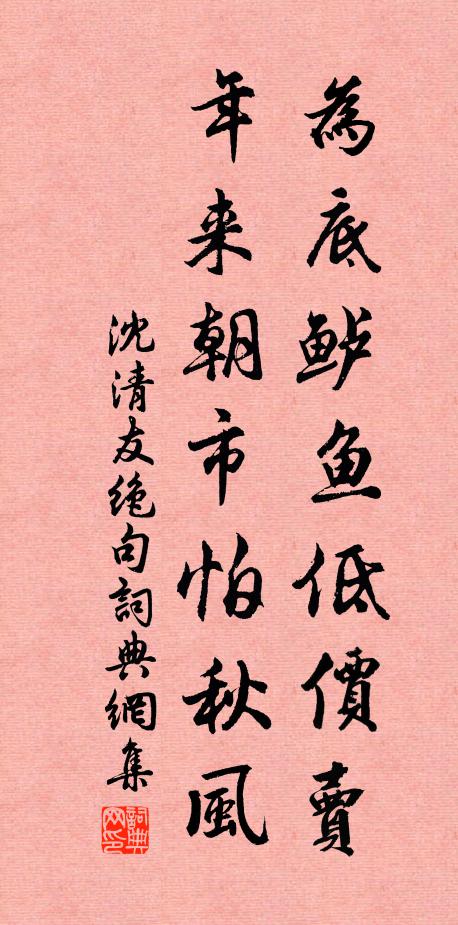 為底鲈鱼低價賣
年来朝市怕秋風
沈清友绝句詞典網集
詞典网印